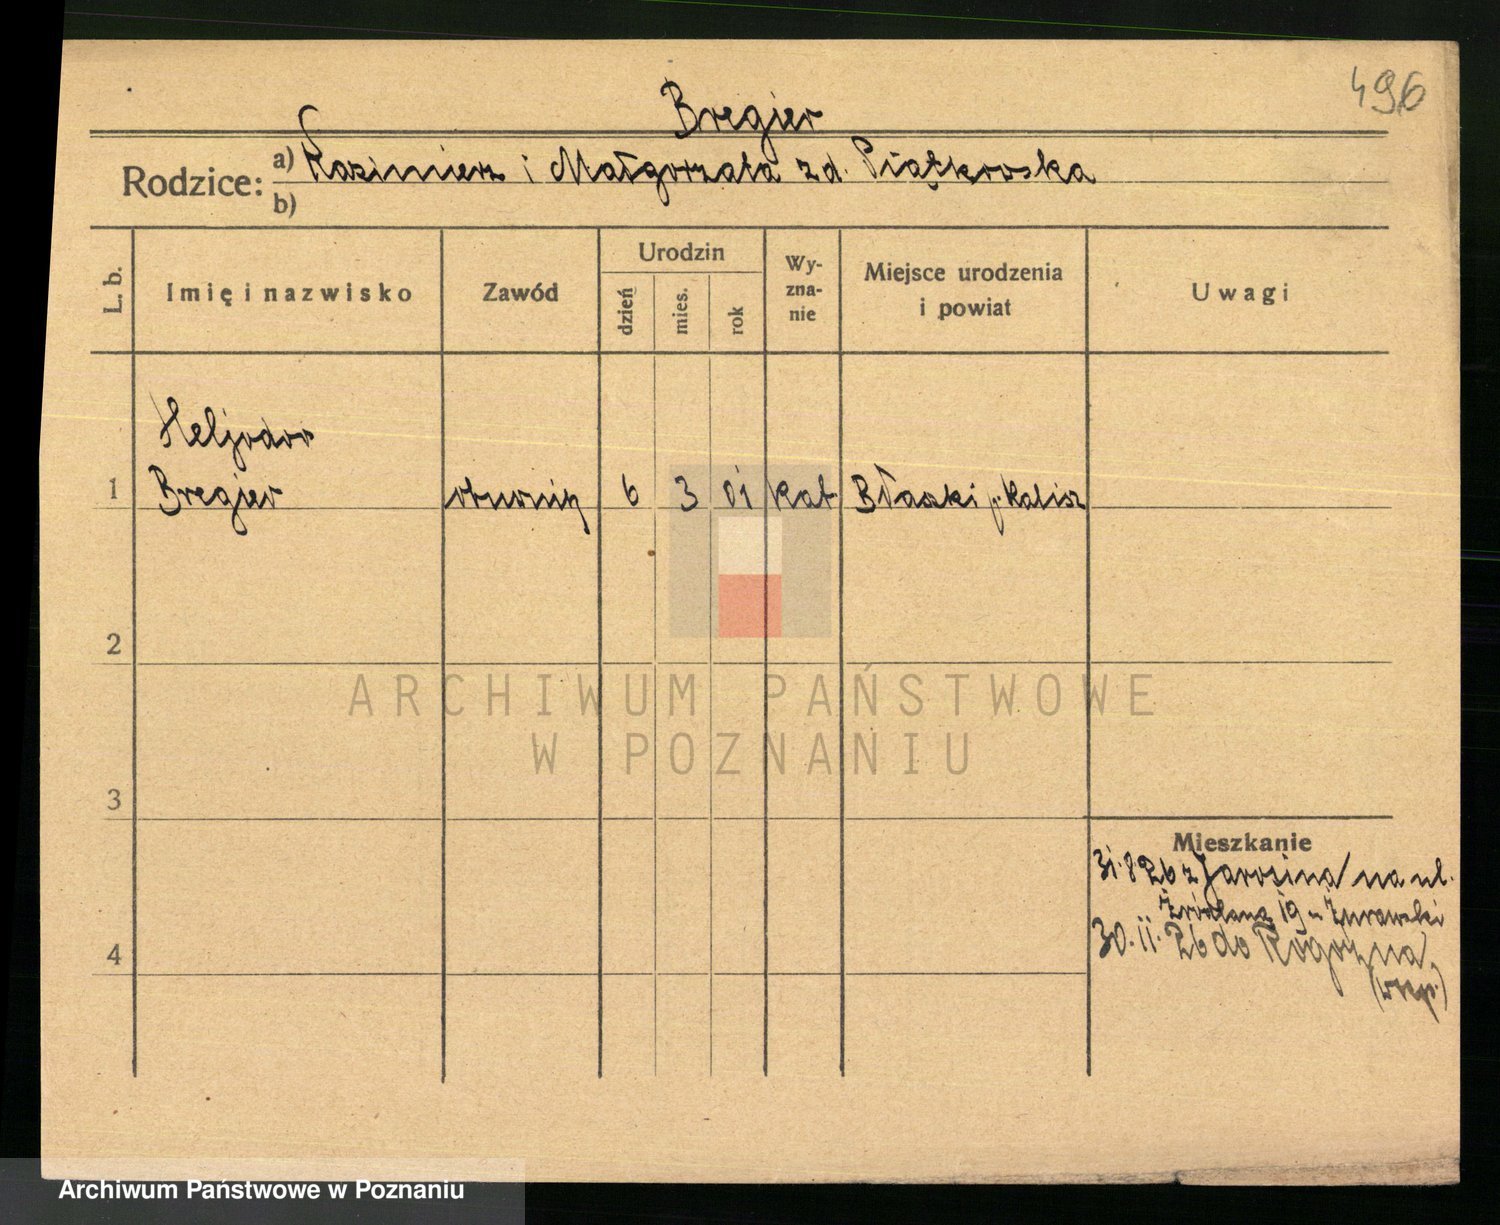 496
Bregier
Rodzice: a) Kazimierz i Małgorzata z d. Piątkowska
b)
L. b. Imię i nazwisko Zawód Urodzin dzień mies. rok Wy-zna-nie Miejsce urodzenia i powiat Uwagi
Heljodor
1 Bregier 6 3 01 kat Błaski p. Kalisz
2
ARCHIWUM PAŃSTWOWE
W POZNANIU
3
Mieszkanie
31.8.26 z Jarosina na ul.
19 u Żurawski
4 30.11.26 do Rogoźna
Archiwum Państwowe w Poznaniu